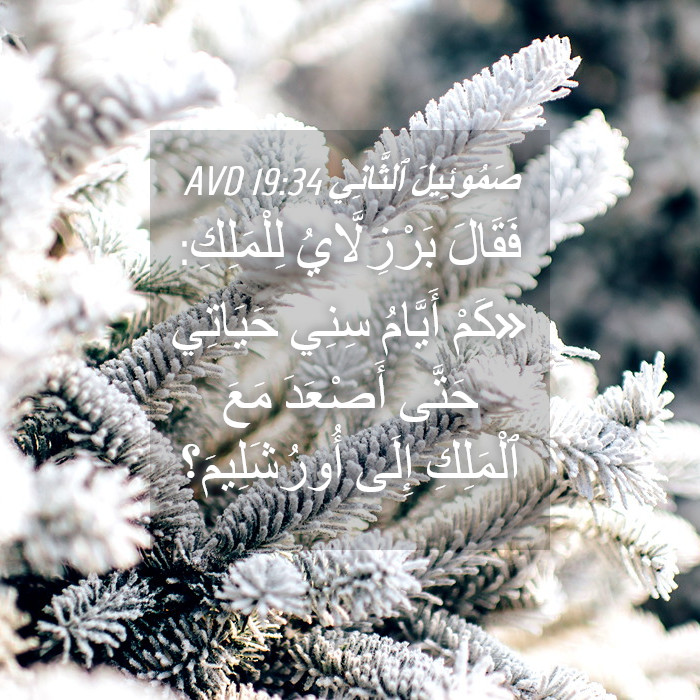 صَمُوئِيلَ ٱلثَّانِي 19:34 AVD
فَقَالَ بَرْزِلَّايُ لِلْمَلِكِ:
«كَمْ أَيَّامُ سِنِي حَيَاتِي
حَتَّى أَصْعَدَ مَعَ
ٱلْمَلِكِ إِلَى أُورُشَلِيمَ؟